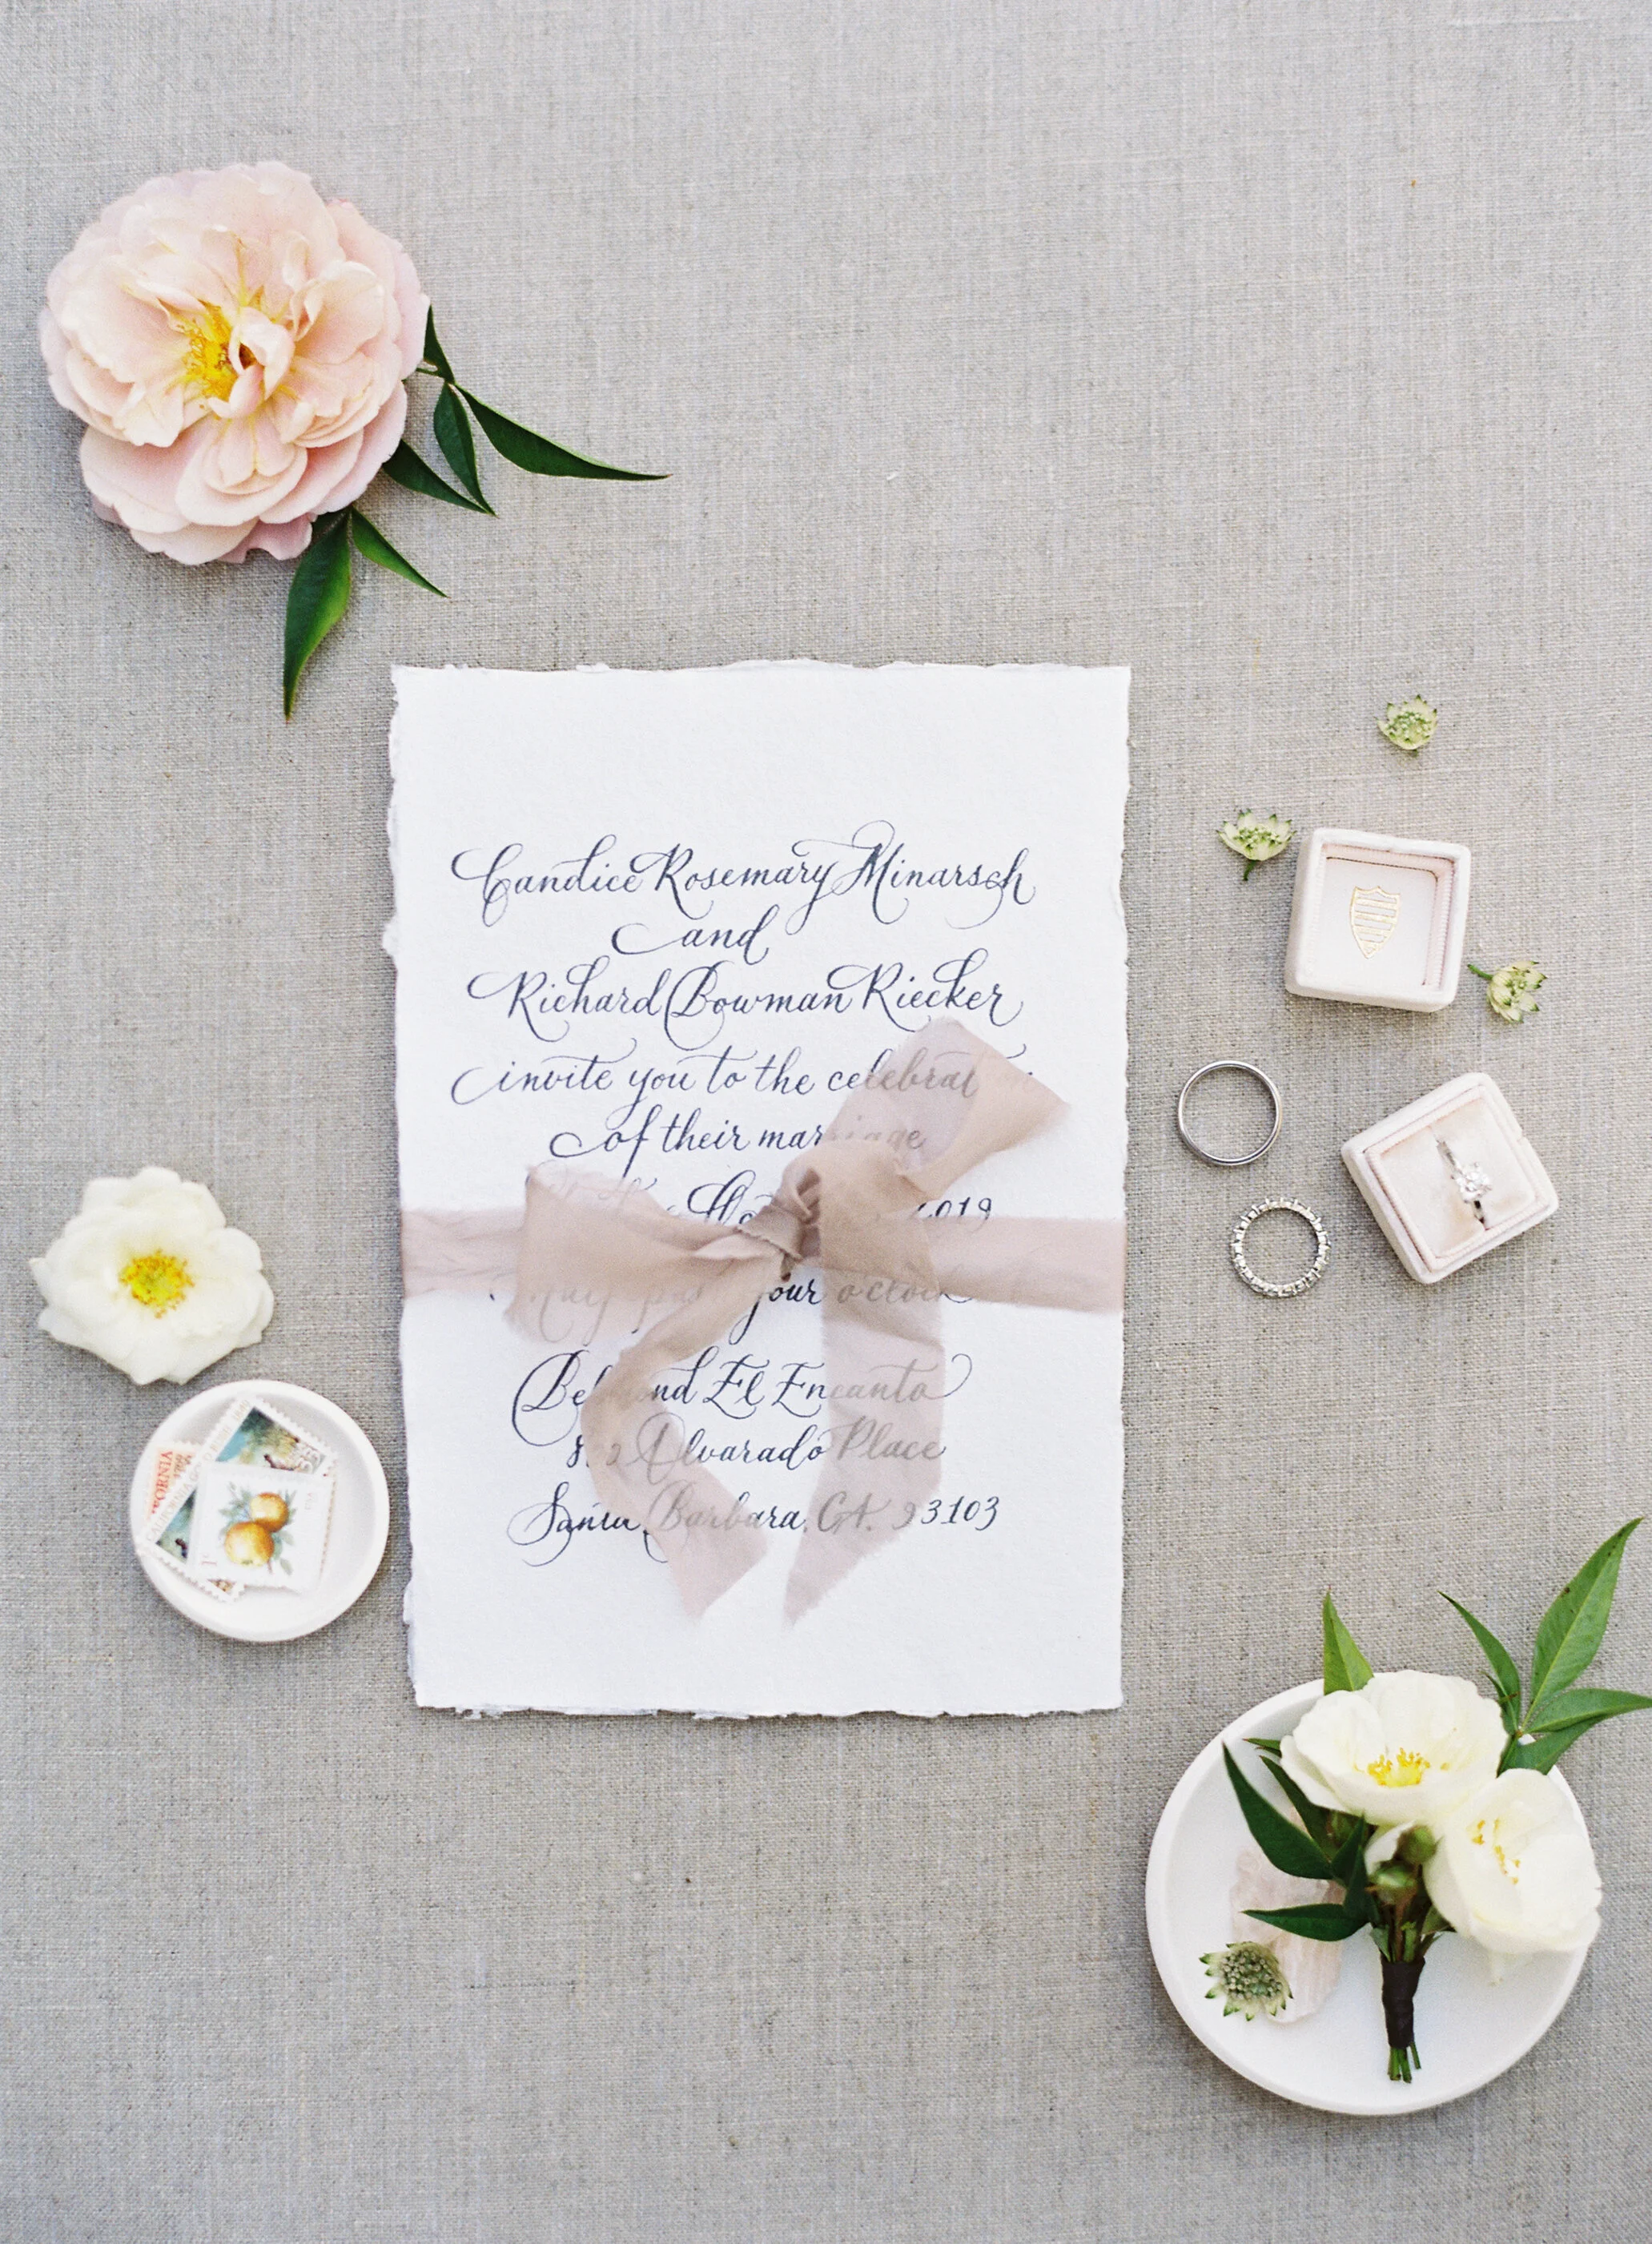 Candice Rosemary Minarsch
and
Richard Bowman Riecker
invite you to the celebration
of their marriage
2019
Half past four o'clock
Belmond El Encanto
Alvarado Place
Santa Barbara, CA. 93103
CALIFORNIA
1¢
USA